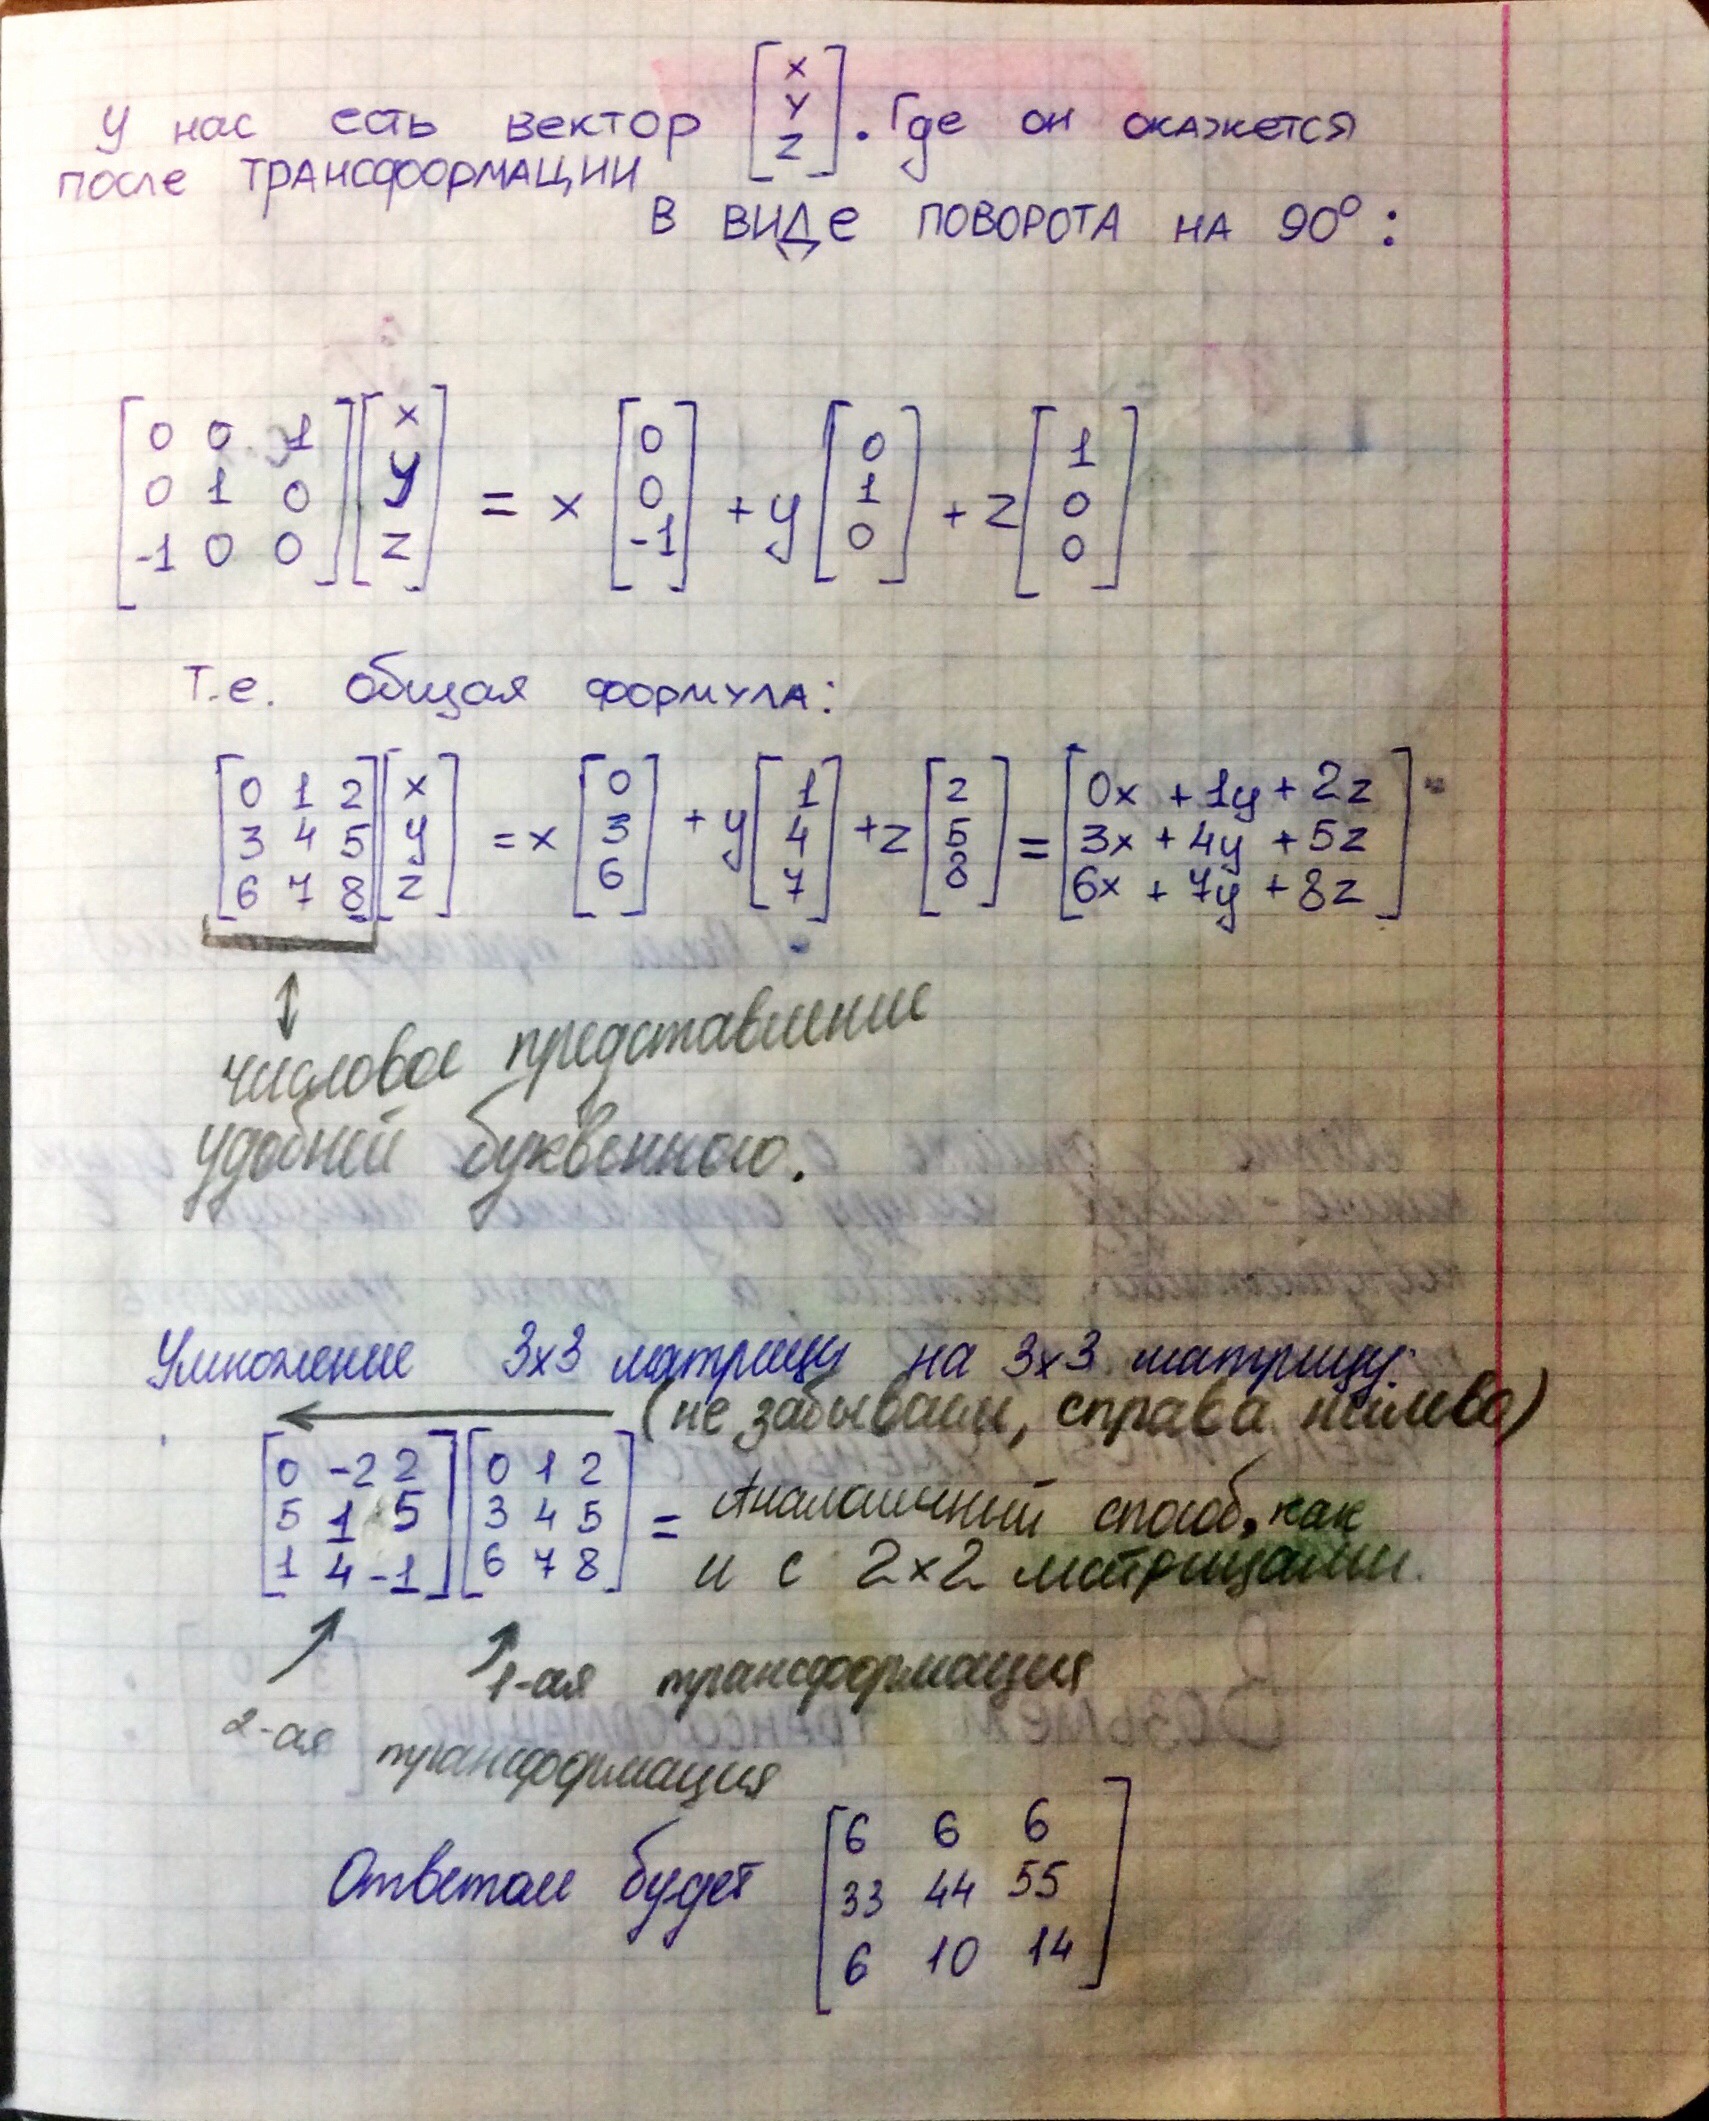 У нас есть вектор [x y z]. Где он окажется
после ТРАНСФОРМАЦИИ
В ВИДе ПОВОРОТА НА 90°:
[0 0 1][x] = x[0] + y[0] + z[1]
[0 1 0][y] [0] [1] [0]
[-1 0 0][z] [-1] [0] [0]
Т.е. общая формула:
[0 1 2][x] = x[0] + y[1] + z[2] = [0x + 1y + 2z]
[3 4 5][y] [3] [4] [5] [3x + 4y + 5z]
[6 7 8][z] [6] [7] [8] [6x + 7y + 8z]
числовое представление
удобней буквенного.
Умножение 3x3 матрицы на 3x3 матрицу:
(не забываем, справа налево)
[0 -2 2][0 1 2] = Аналогичный способ, как
[5 1 5][3 4 5] и с 2x2 матрицами.
[1 4 -1][6 7 8]
1-ая трансформация
2-ая трансформация
Ответом будет [6 6 6]
[33 44 55]
[6 10 14]